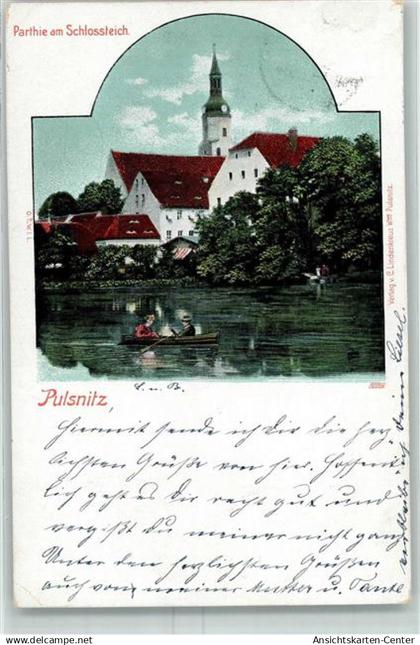 Parthie am Schlossteich.
D.T.W.I.L.
Verlag v. C. Lindenkreuz Wwe Pulsnitz.
Pulsnitz,
L. u. B.
Hiermit sende ich Dir die herz
lichsten Grüße von hier. Hoffent
lich geht es Dir recht gut und
vergißt Du meiner nicht ganz
Unter den herzlichsten Grüßen
auch von meiner Mutter u. Tante
verbleibe ich Dein Liesel.
© Ansichtskarten-Center
Ansichtskarten-Center